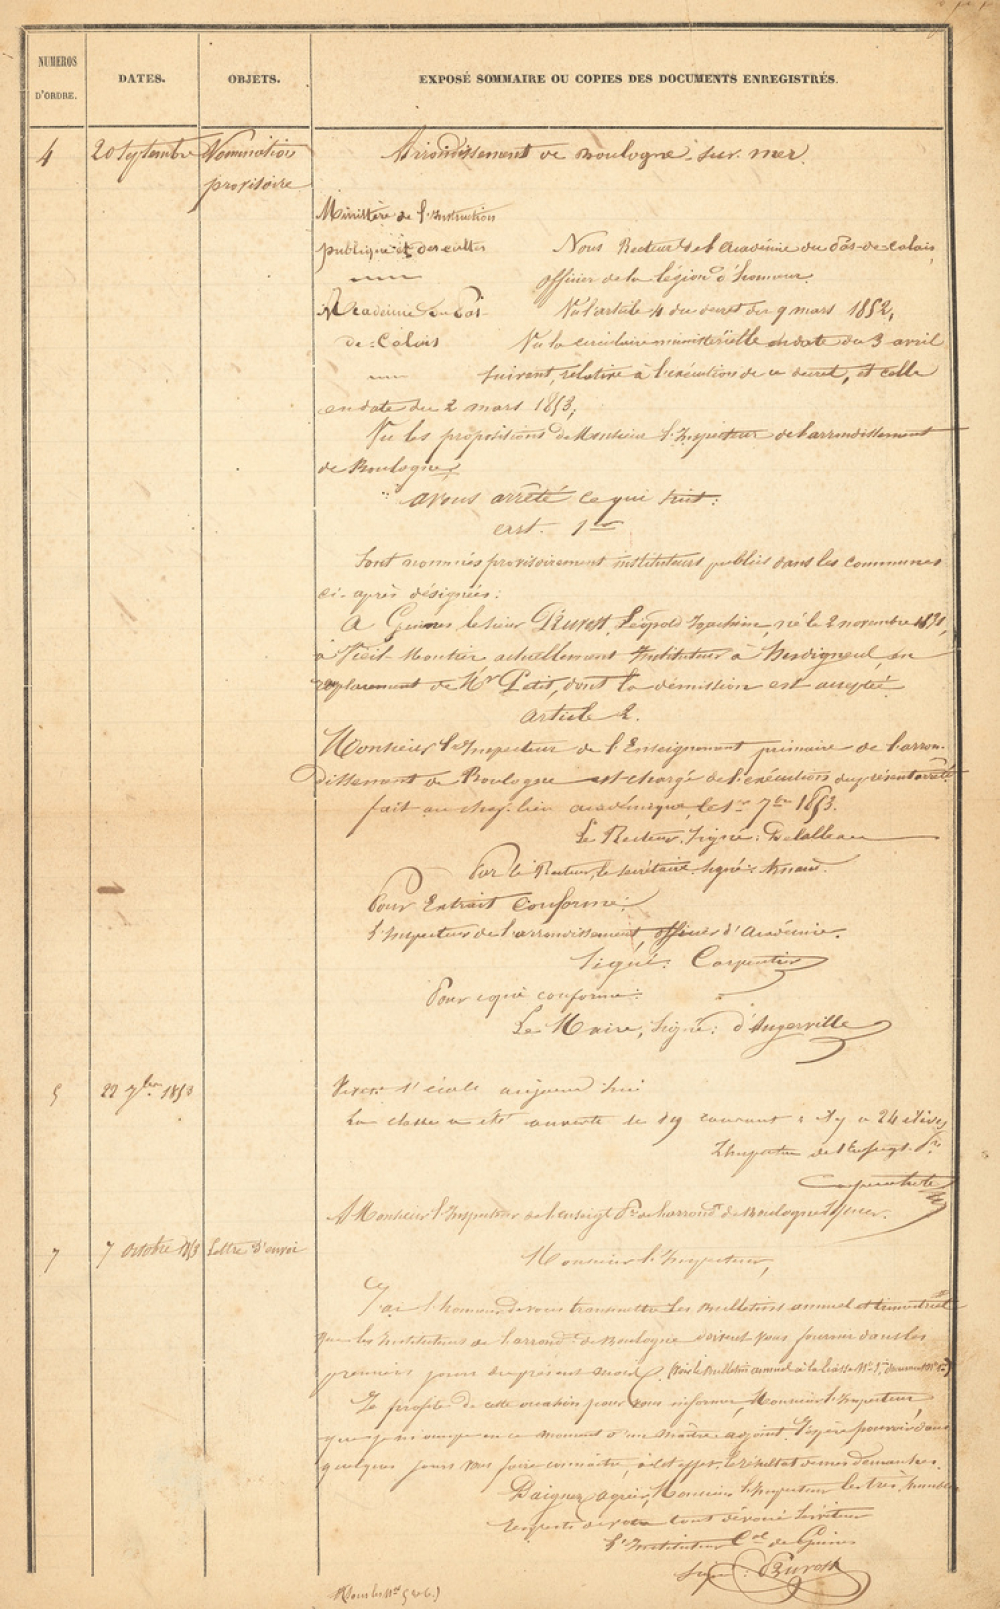 NUMEROS D'ORDRE.
DATES.
OBJETS.
EXPOSÉ SOMMAIRE OU COPIES DES DOCUMENTS ENREGISTRÉS.
4
20 septembre
Nomination
provisoire
Arrondissement de Boulogne-sur-mer.
Ministère de l'Instruction
publique et des cultes
Académie du Pas-
de-Calais
Nous Recteur de l'Académie du Pas-de-Calais,
officier de la légion d'honneur.
Vu l'article 4 du décret du 9 mars 1852,
Vu la circulaire ministérielle en date du 3 avril
suivant, relative à l'exécution de ce décret, et celle
en date du 2 mars 1853,
Vu les propositions de Monsieur l'Inspecteur de l'arrondissement
de Boulogne,
avons arrêté ce qui suit:
art. 1er
Sont nommés provisoirement instituteurs publics dans les communes
ci-après désignées:
A Guines le sieur Léopold Joachim, né le 2 novembre
à Vieil-Moutier actuellement Instituteur à Hesdigneul, en
remplacement de Mr Petit, dont la démission est acceptée.
Article 2.
Monsieur l'Inspecteur de l'Enseignement primaire de l'arron-
dissement de Boulogne est chargé de l'exécution du présent arrêté.
fait au chef-lieu académique, le 1er 7bre 1853.
Le Recteur, Signé: Delalleau
Pour le Recteur, le secrétaire, signé:
Pour Extrait conforme:
l'Inspecteur de l'arrondissement, officier d'Académie.
Signé: Carpentier
Pour copie conforme:
Le Maire, Signé: d'Angerville
5
22 7bre 1853
l'école aujourd'hui
La classe a été ouverte le 19 courant : il y a 24 élèves
L'Inspecteur de l'Enseigt. Pre
Carpentier
A Monsieur l'Inspecteur de l'enseigt Pre de l'arrondt de Boulogne s/mer.
7
7 octobre 1853
Lettre d'envoi
Monsieur l'Inspecteur,
J'ai l'honneur de vous transmettre les Bulletins annuel et trimestriel
que les Instituteurs de l'arrondt de Boulogne doivent vous fournir dans les
premiers jours du présent mois. (Voir le Bulletin annuel à la liasse No 1,
Je profite de cette occasion pour vous informer, Monsieur l'Inspecteur,
que je m'occupe en ce moment d'un maître-adjoint. J'espère pouvoir dans
quelques jours vous faire connaître, à cet effet, le résultat de mes démarches.
Daignez agréer, Monsieur l'Inspecteur les très humbles
respects de votre tout dévoué serviteur
l'Instituteur Cal de Guines
Signé: